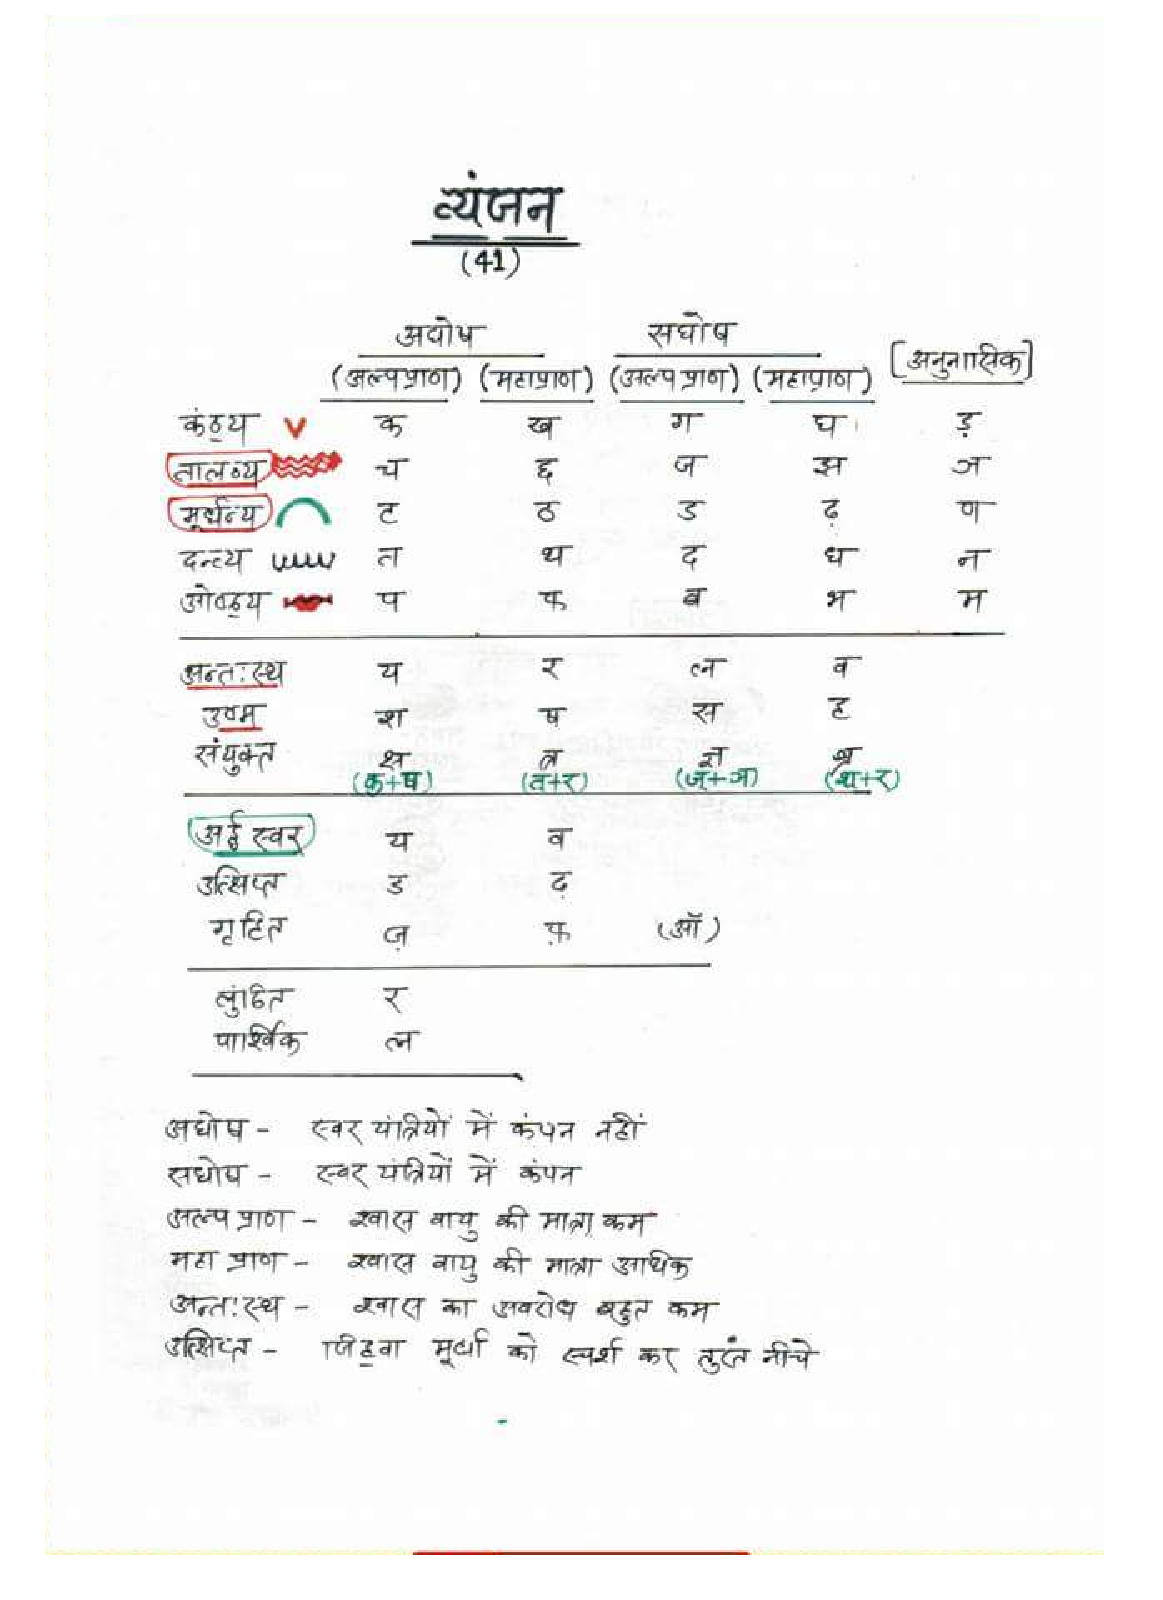 व्यंजन
(41)
अघोष सघोष
(अल्पप्राण) (महाप्राण) (अल्पप्राण) (महाप्राण) [अनुनासिक]
कंठ्य क ख ग घ ड़
तालव्य च छ ज झ ञ
मूर्धन्य ट ठ ड ढ़ ण
दन्त्य त थ द ध न
ओष्ठ्य प फ ब भ म
अन्तःस्थ य र ल व
उष्म श ष स ह
संयुक्त क्ष त्र ज्ञ श्र
(क्+ष) (त+र) (ज्+ञ) (श+र)
अर्द्ध स्वर य व
उत्क्षिप्त ड ढ़
गृहित ज़ फ़ (ऑ)
लुंठित र
पार्श्विक ल
अघोष - स्वर यंत्रियों में कंपन नहीं
सघोष - स्वर यंत्रियों में कंपन
अल्प प्राण - श्वास वायु की मात्रा कम
महा प्राण - श्वास वायु की मात्रा अधिक
अन्तःस्थ - श्वास का अवरोध बहुत कम
उत्क्षिप्त - जिह्वा मूर्धा को स्पर्श कर तुरंत नीचे